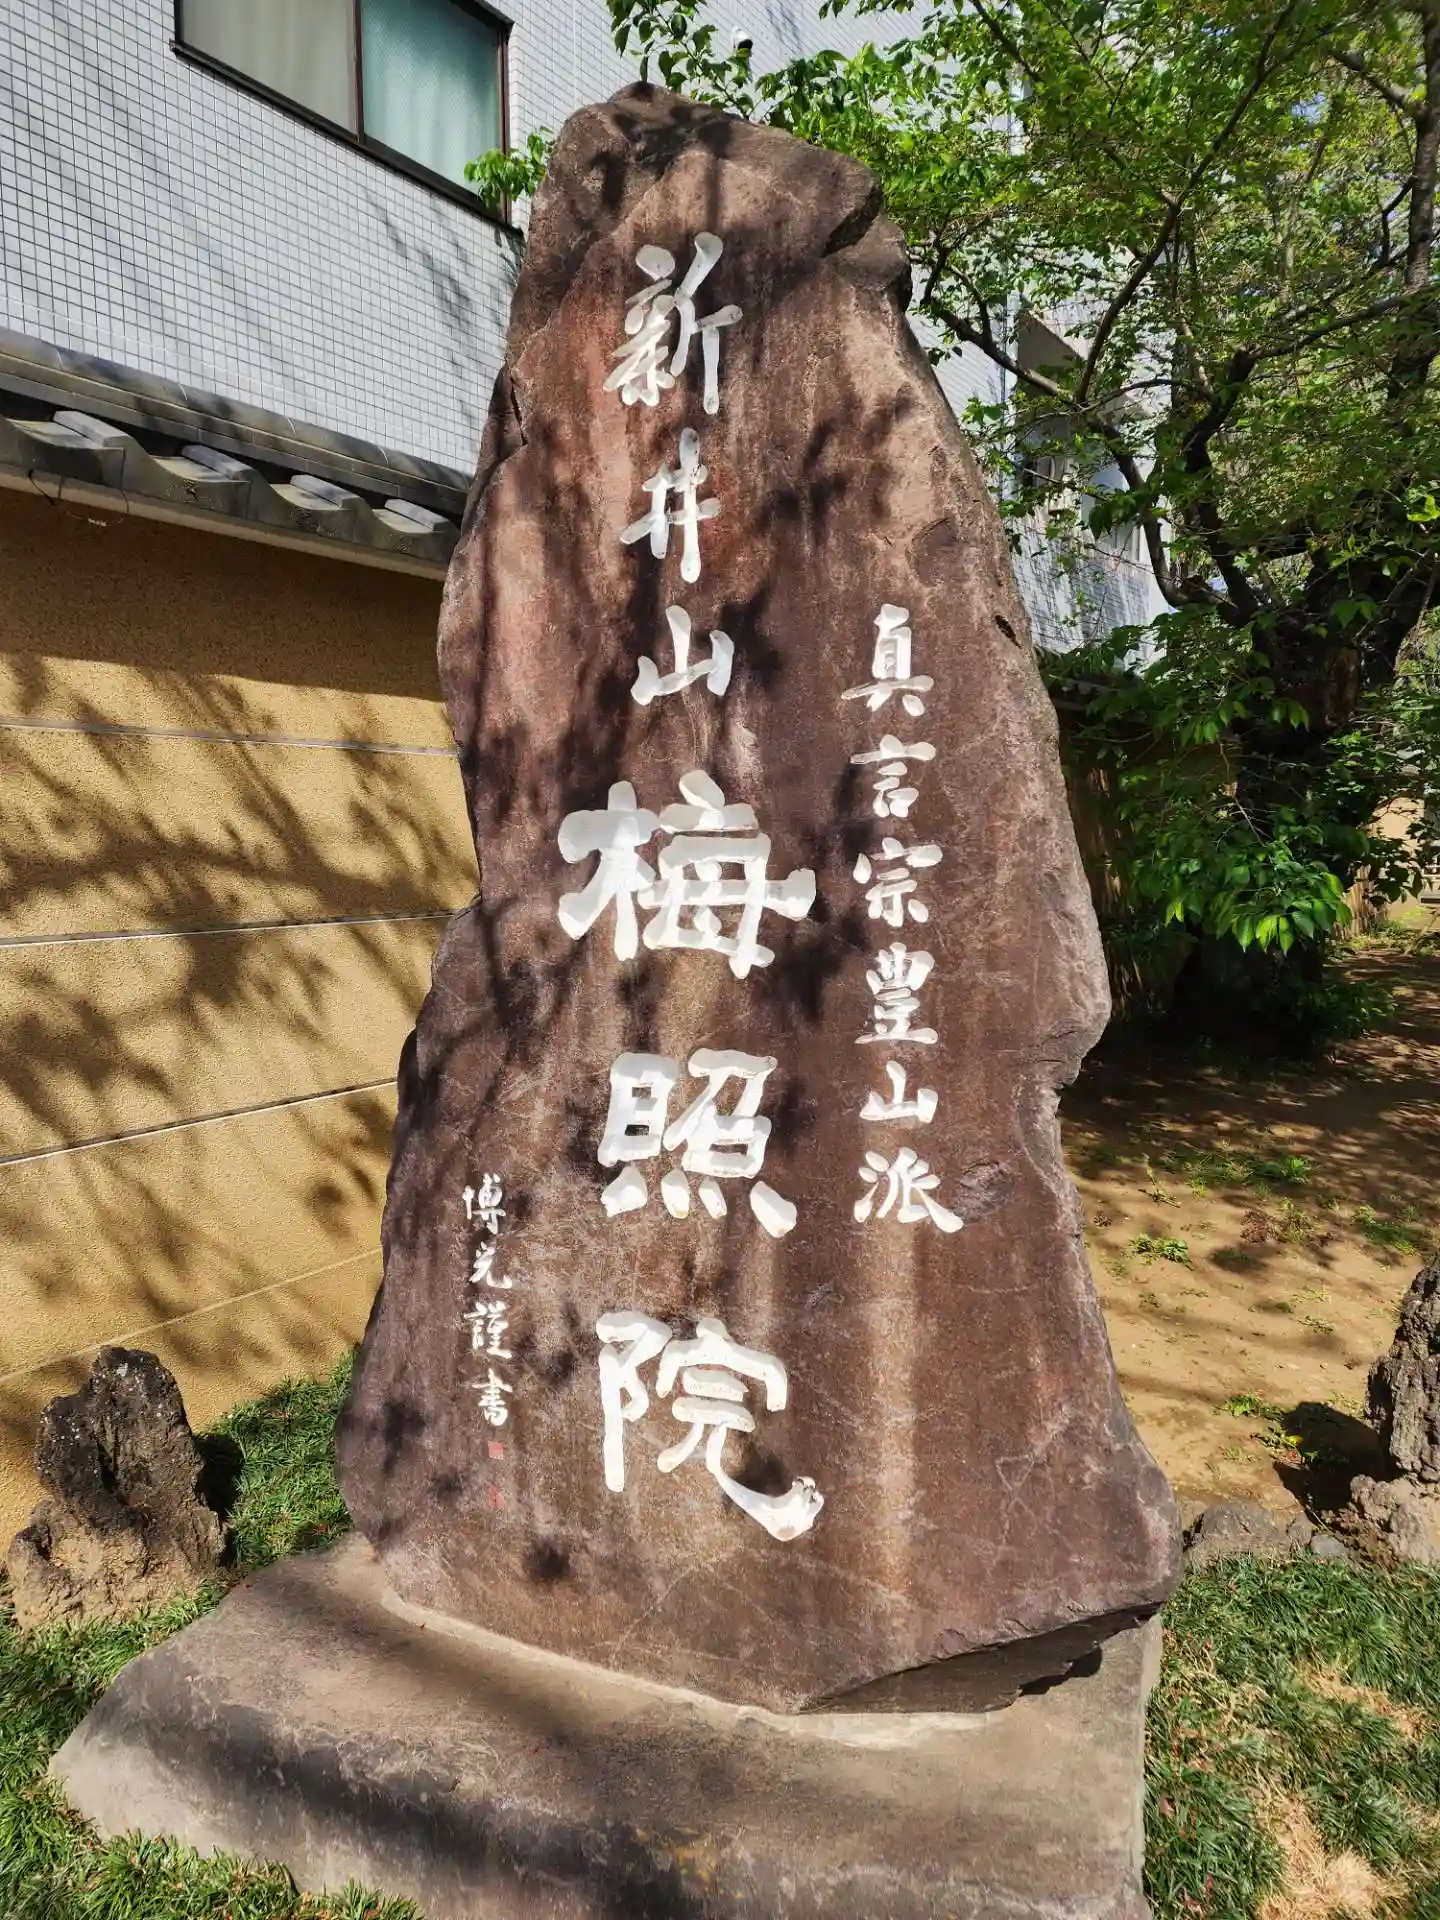 真言宗豊山派
新井山梅照院
博光謹書